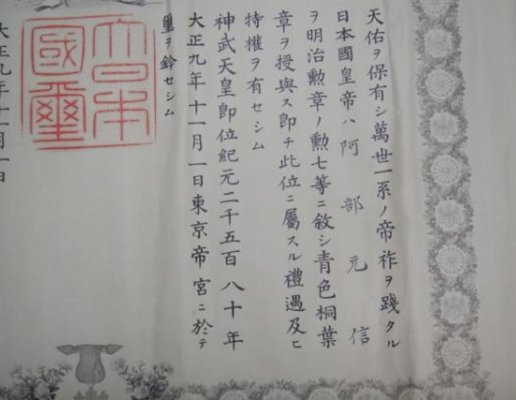 天佑ヲ保有シ萬世一系ノ帝祚ヲ踐タル
日本國皇帝ハ阿部充信
ヲ明治勲章ノ勲七等ニ敘シ青色桐葉
章ヲ授與ス即チ此位ニ屬スル禮遇及ヒ
特權ヲ有セシム
神武天皇即位紀元二千五百八十年
大正九年十一月一日東京帝宮ニ於テ
璽ヲ鈐セシム
大日本
國璽
大正九年十一月一日